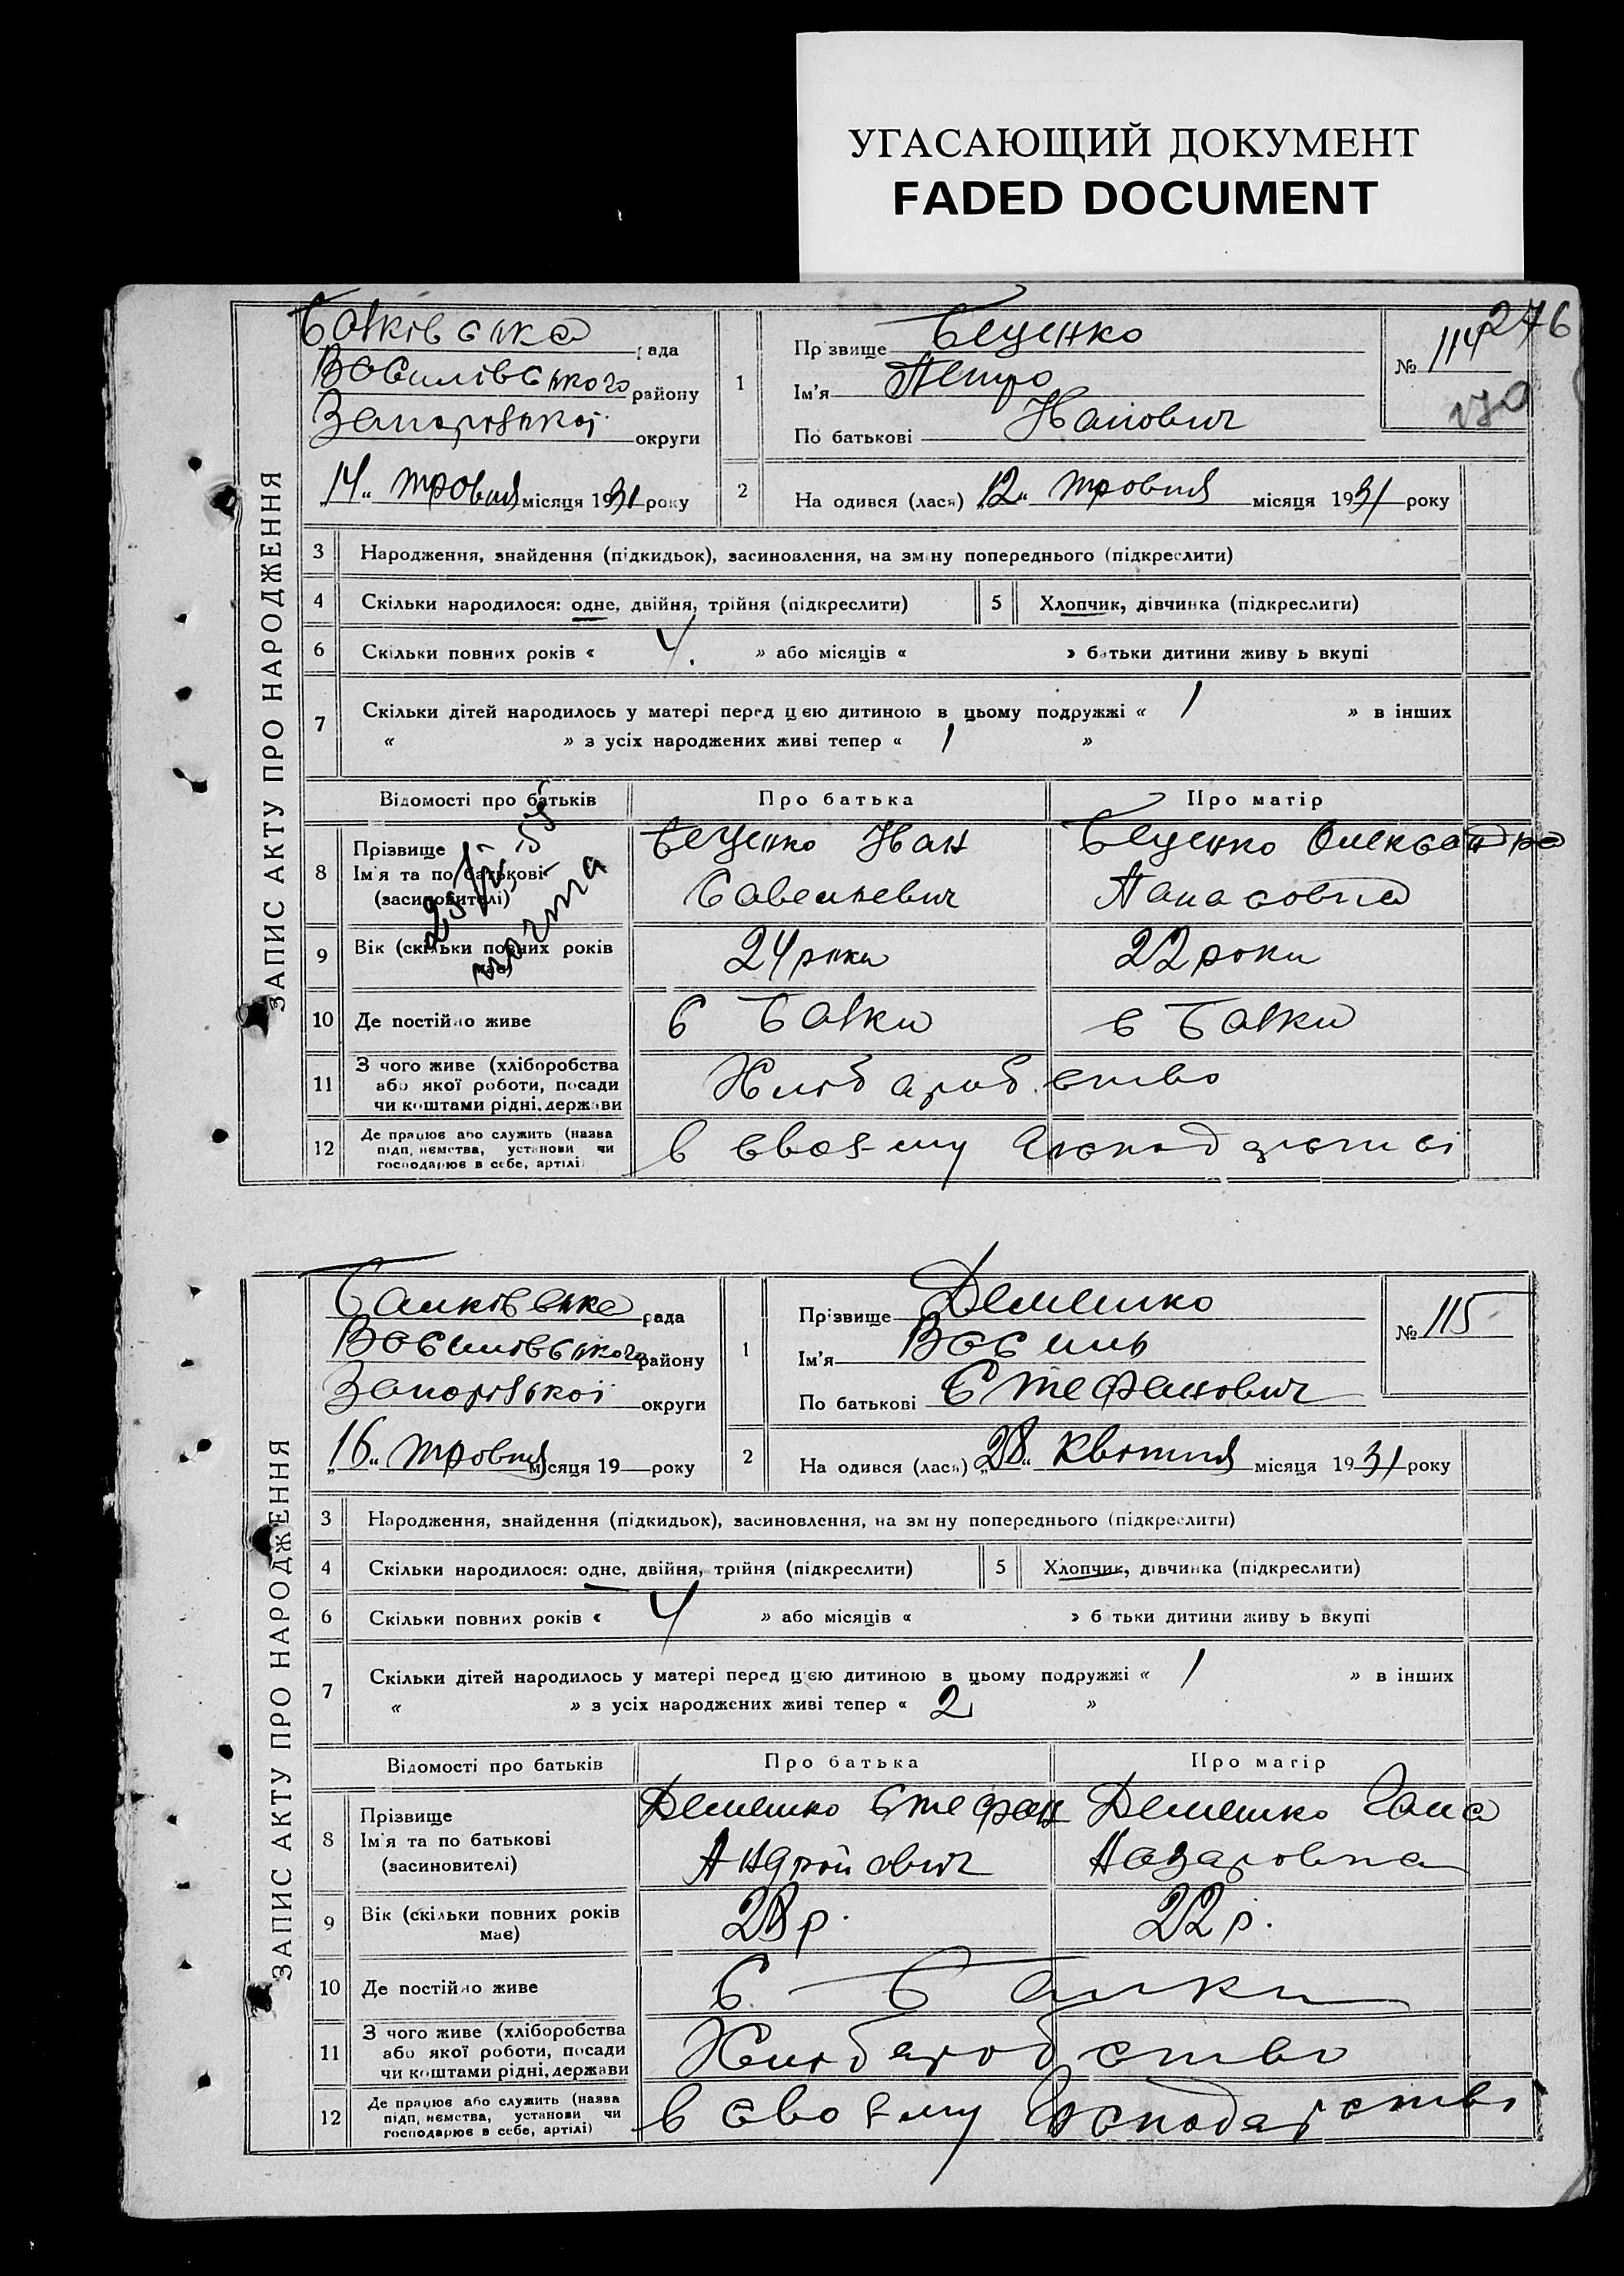 УГАСАЮЩИЙ ДОКУМЕНТ
FADED DOCUMENT
ЗАПИС АКТУ ПРО НАРОДЖЕННЯ
Балківська рада
Василівського району
Запорізької округи
„14“ травня місяця 1931 року
276
№ 114
1 Прізвище Беценко
Ім'я Петро
По батькові Іванович
2 На одився (лася) „12“ травня місяця 1931 року
3 Народження, знайдення (підкидьок), засиновлення, на зміну попереднього (підкреслити)
4 Скільки народилося: одне, двійня, трійня (підкреслити) 5 Хлопчик, дівчинка (підкреслити)
6 Скільки повних років « 4. » або місяців « » батьки дитини живу ь вкупі
7 Скільки дітей народилось у матері перед цією дитиною в цьому подружжі « 1 » в інших
« » з усіх народжених живі тепер « 1 »
Відомості про батьків Про батька Про матір
8 Прізвище Ім'я та по батькові (засиновителі) Беценко Іван Беценко Олександра
Савельевич Панасовна
9 Вік (скільки повних років має) 24 роки 22 роки
10 Де постійно живе с Балки с Балки
11 З чого живе (хліборобства
або якої роботи, посади
чи коштами рідні, держави Хліборобство
12 Де працює або служить (назва
підп, иємства, установи чи
господарює в себе, артілі) в своєму
ЗАПИС АКТУ ПРО НАРОДЖЕННЯ
Балківська рада
Василівського району
Запорізької округи
„16“ травня місяця 19 року
№ 115
1 Прізвище Демешко
Ім'я Василь
По батькові Стефанович
2 На одився (лася) „28“ квітня місяця 1931 року
3 Народження, знайдення (підкидьок), засиновлення, на зм ну попереднього (підкреслити)
4 Скільки народилося: одне, двійня, трійня (підкреслити) 5 Хлопчик, дівчинка (підкреслити)
6 Скільки повних років « 4 » або місяців « » б тьки дитини живу ь вкупі
7 Скільки дітей народилось у матері перед цією дитиною в цьому подружжі « 1 » в інших
« » з усіх народжених живі тепер « 2 »
Відомості про батьків Про батька Про матір
8 Прізвище Ім'я та по батькові (засиновителі) Демешко Стефан Демешко Гана
Андрійович Назаровна
9 Вік (скільки повних років має) 28 р. 22 р.
10 Де постійно живе С. Балки
11 З чого живе (хліборобства
або якої роботи, посади
чи коштами рідні, держави Хліборобство
12 Де працює або служить (назва
підп, иємства, установи чи
господарює в себе, артілі) в своєму господарстві